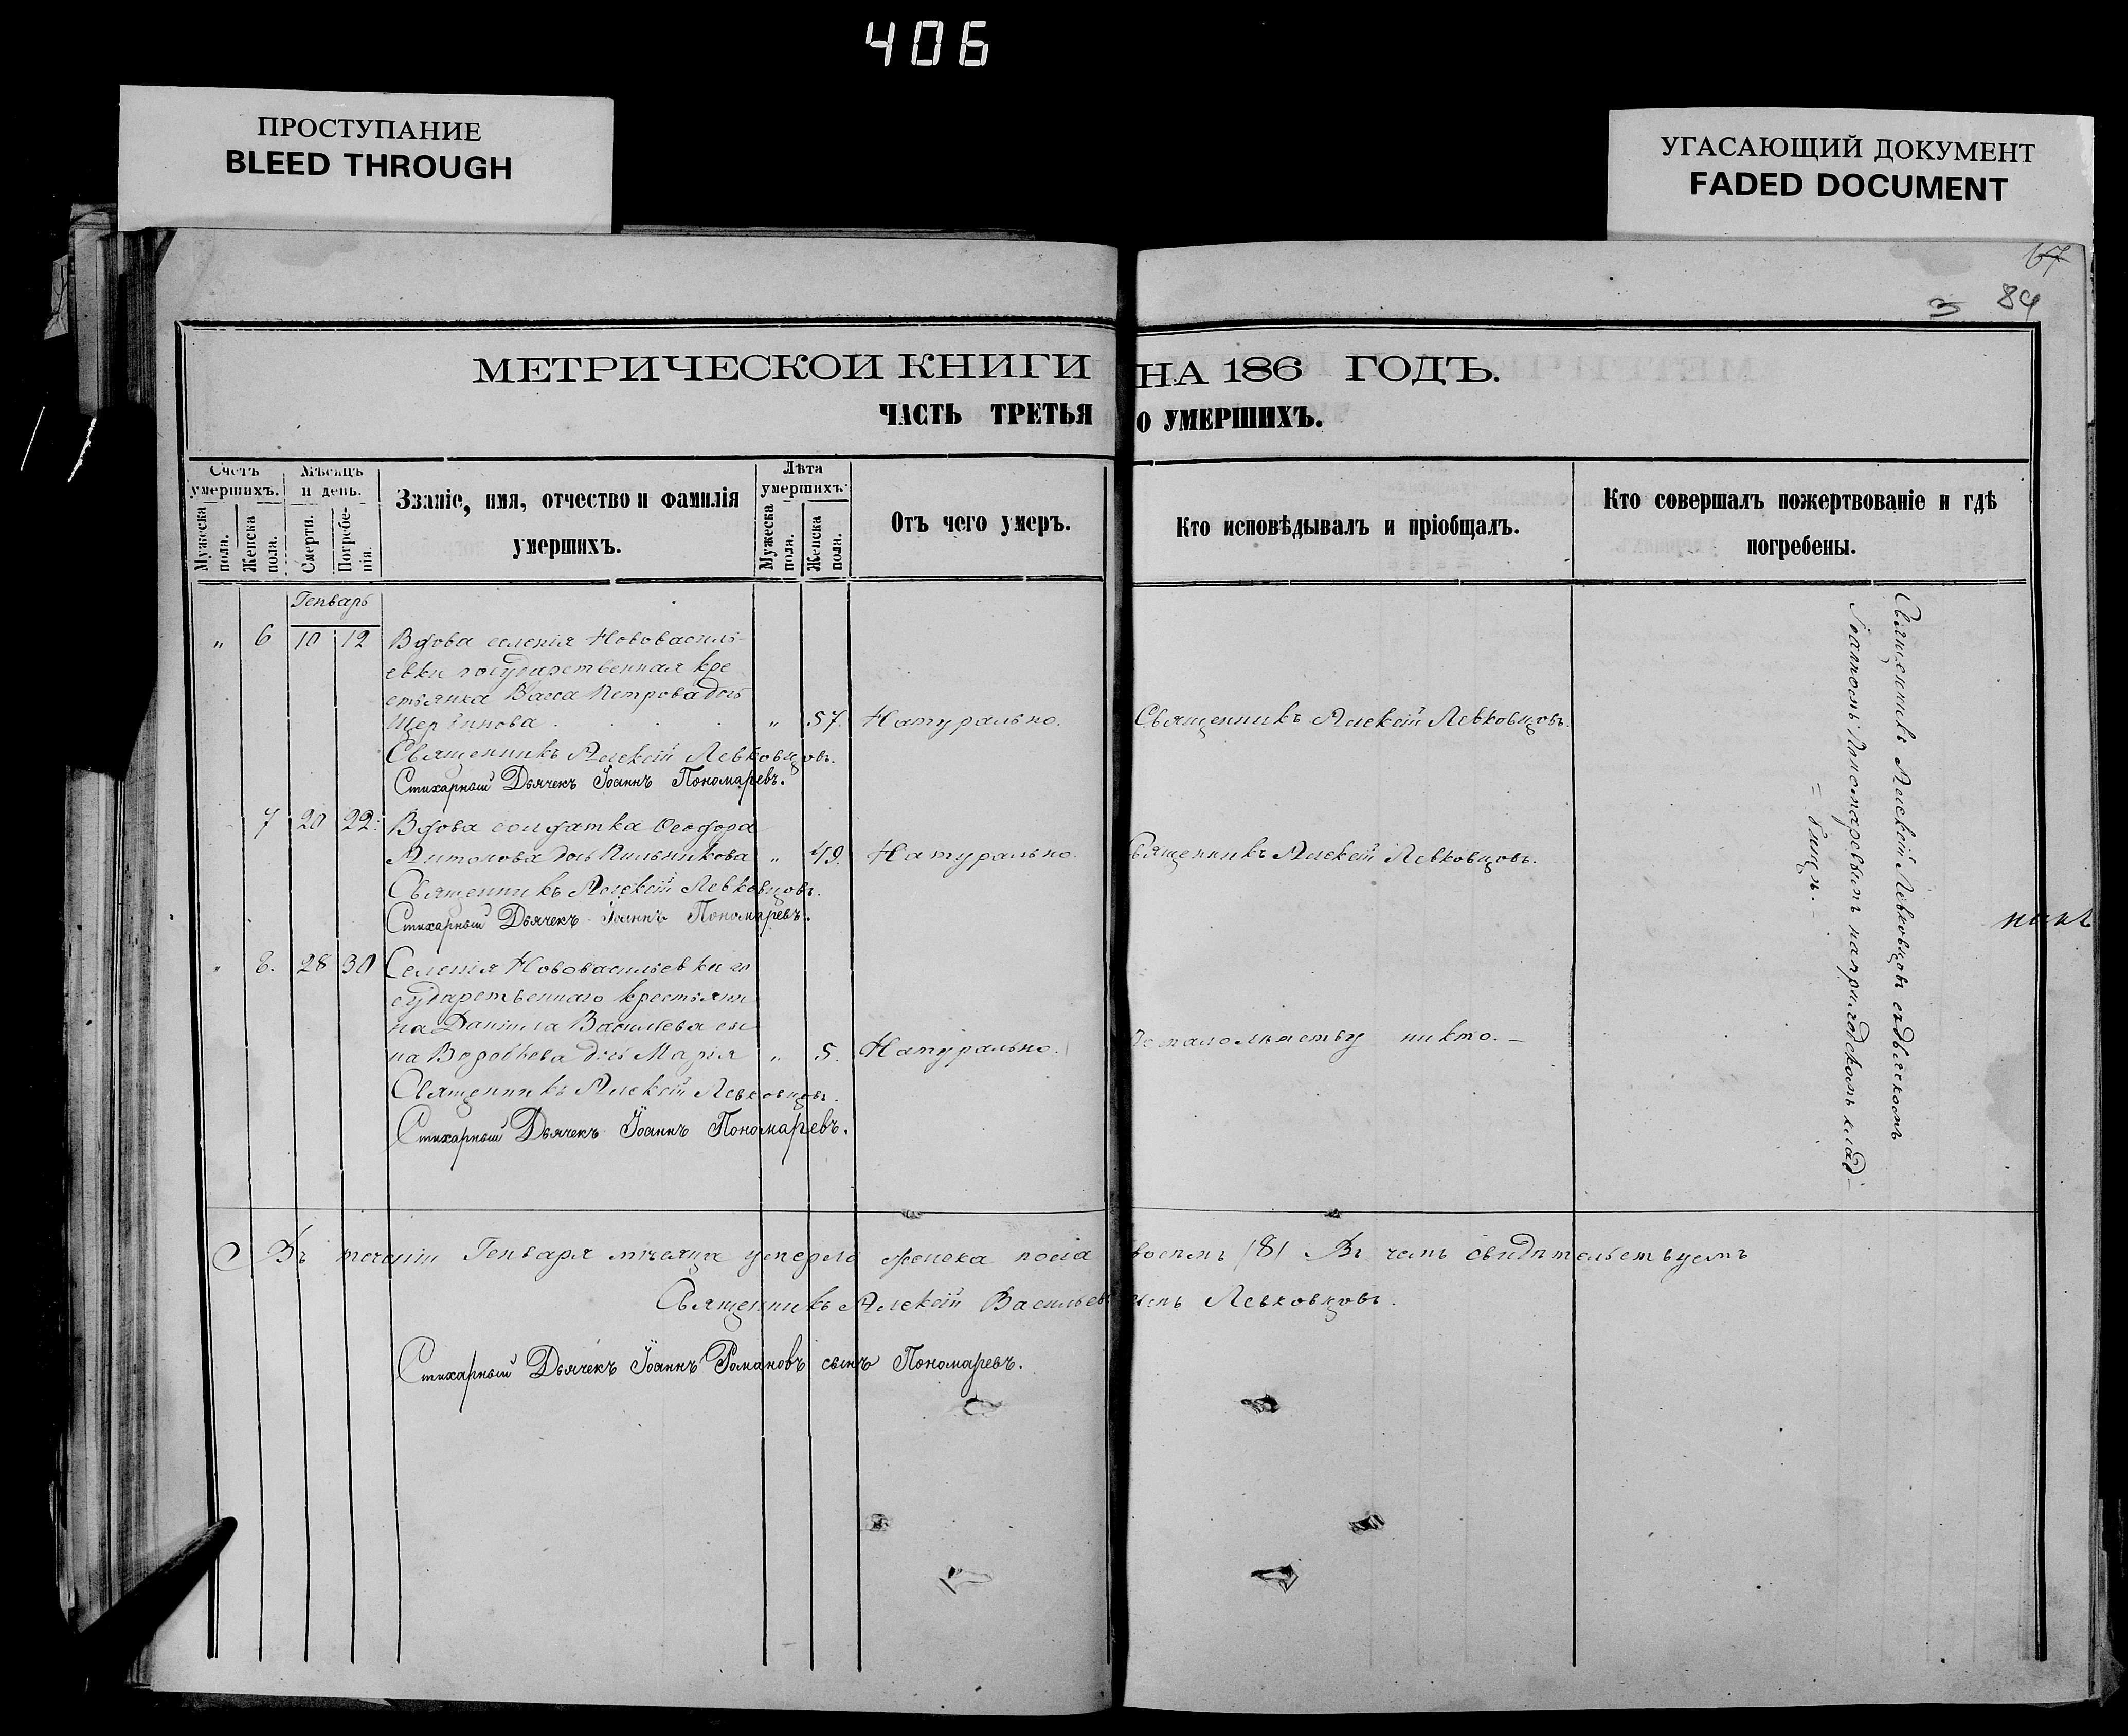 406
ПРОСТУПАНИЕ
BLEED THROUGH
УГАСАЮЩИЙ ДОКУМЕНТ
FADED DOCUMENT
67
3 84
МЕТРИЧЕСКОЙ КНИГИ НА 186 ГОДЪ.
ЧАСТЬ ТРЕТЬЯ О УМЕРШИХЪ.
Счетъ умершихъ.
Мужеска пола.
Женска пола.
Мѣсяцъ и день.
Смерти.
Погребенія.
Званіе, имя, отчество и фамилія
умершихъ.
Лѣта умершихъ.
Мужеска пола.
Женска пола.
Отъ чего умеръ.
Кто исповѣдывалъ и пріобщалъ.
Кто совершалъ пожертвованіе и гдѣ
погребены.
Генварь
„ 6 10 12 Вдова селенія Нововасиль-
евки государственная кре
стьянка Васса Петрова дочь
Щербинова „ 57. Натурально. Священникъ Алексій Левковцовъ.
Священникъ Алексій Левковцовъ.
Стихарный Дьячекъ Іоаннъ Пономаревъ.
7 20 22. Вдова солдатка Ѳеодора
Антонова дочь Пильникова „ 49. Натурально. Священникъ Алексій Левковцовъ.
Священникъ Алексій Левковцовъ.
Стихарный Дьячекъ Іоаннъ Пономаревъ.
„ 8. 28 30 Селенія Нововасильевки го
сударственнаго крестьяни
на Даніила Васильева сы
на Воробьева дочь Марія „ 5. Натурально. По малолѣтству никто. –
Священникъ Алексій Левковцовъ.
Стихарный Дьячекъ Іоаннъ Пономаревъ.
Священникъ Алексій Левковцовъ съ дьячкомъ
Іоанномъ Пономаревымъ на приходскомъ клад-
= бищѣ. –
Въ теченіи Генваря мѣсяца умерло женска пола восемь (8) Въ чемъ свидѣтельствуемъ
Священникъ Алексій Васильевъ сынъ Левковцовъ.
Стихарный Дьячекъ Іоаннъ Романовъ сынъ Пономаревъ.